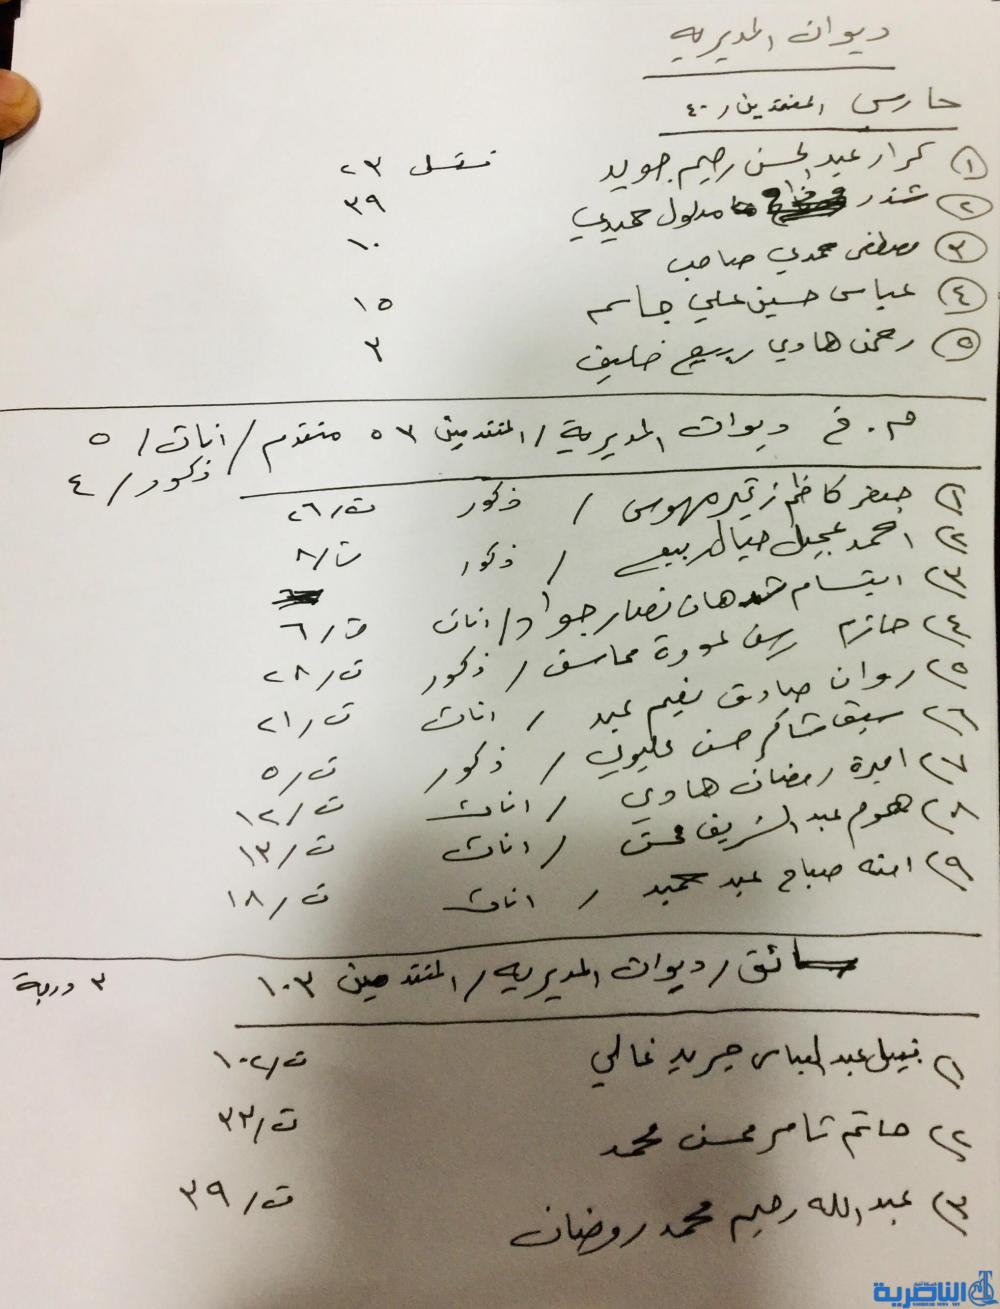 ديوان المديرية
حارس المتقدمين / ٤٠
١ كرار عبد الحسن رحيم جويد تسلسل ٢٣
٢ شذر مدلول حميدي ٣٩
٣ مصطفى حمدي صاحب ١٠
٤ عباس حسين علي جاسم ١٥
٥ رحمن هادي ربيع خليف ٣
م. في ديوان المديرية / المتقدمين ٥٣ متقدم / اناث / ٥
ذكور / ٤
١) جعفر كاظم زغير مهوس / ذكور ت / ٢٦
٢) احمد عجيل خيال ربيع / ذكور ت / ٨
٣) ابتسام شدهان نصار جواد / اناث ت / ٦
٤) حازم عودة / ذكور ت / ٢٨
٥) روان صادق نعيم عبد / اناث ت / ٢١
٦) شاكر حسن عليوي / ذكور ت / ٥
٧) اميرة رمضان هادي / اناث ت / ١٢
٨) عبد الشريف محسن / اناث ت / ١٣
٩) امنه صباح عبد حميد / اناث ت / ١٨
سائق / ديوان المديرية / المتقدمين ١٠٣ ٣ درجة
١) نبيل عبد العباس جريد غالي ت / ١٠٢
٢) حاتم ثامر محسن محمد ت / ٣٣
٣) عبد الله رحيم محمد روضان ت / ٣٩
الناصرية